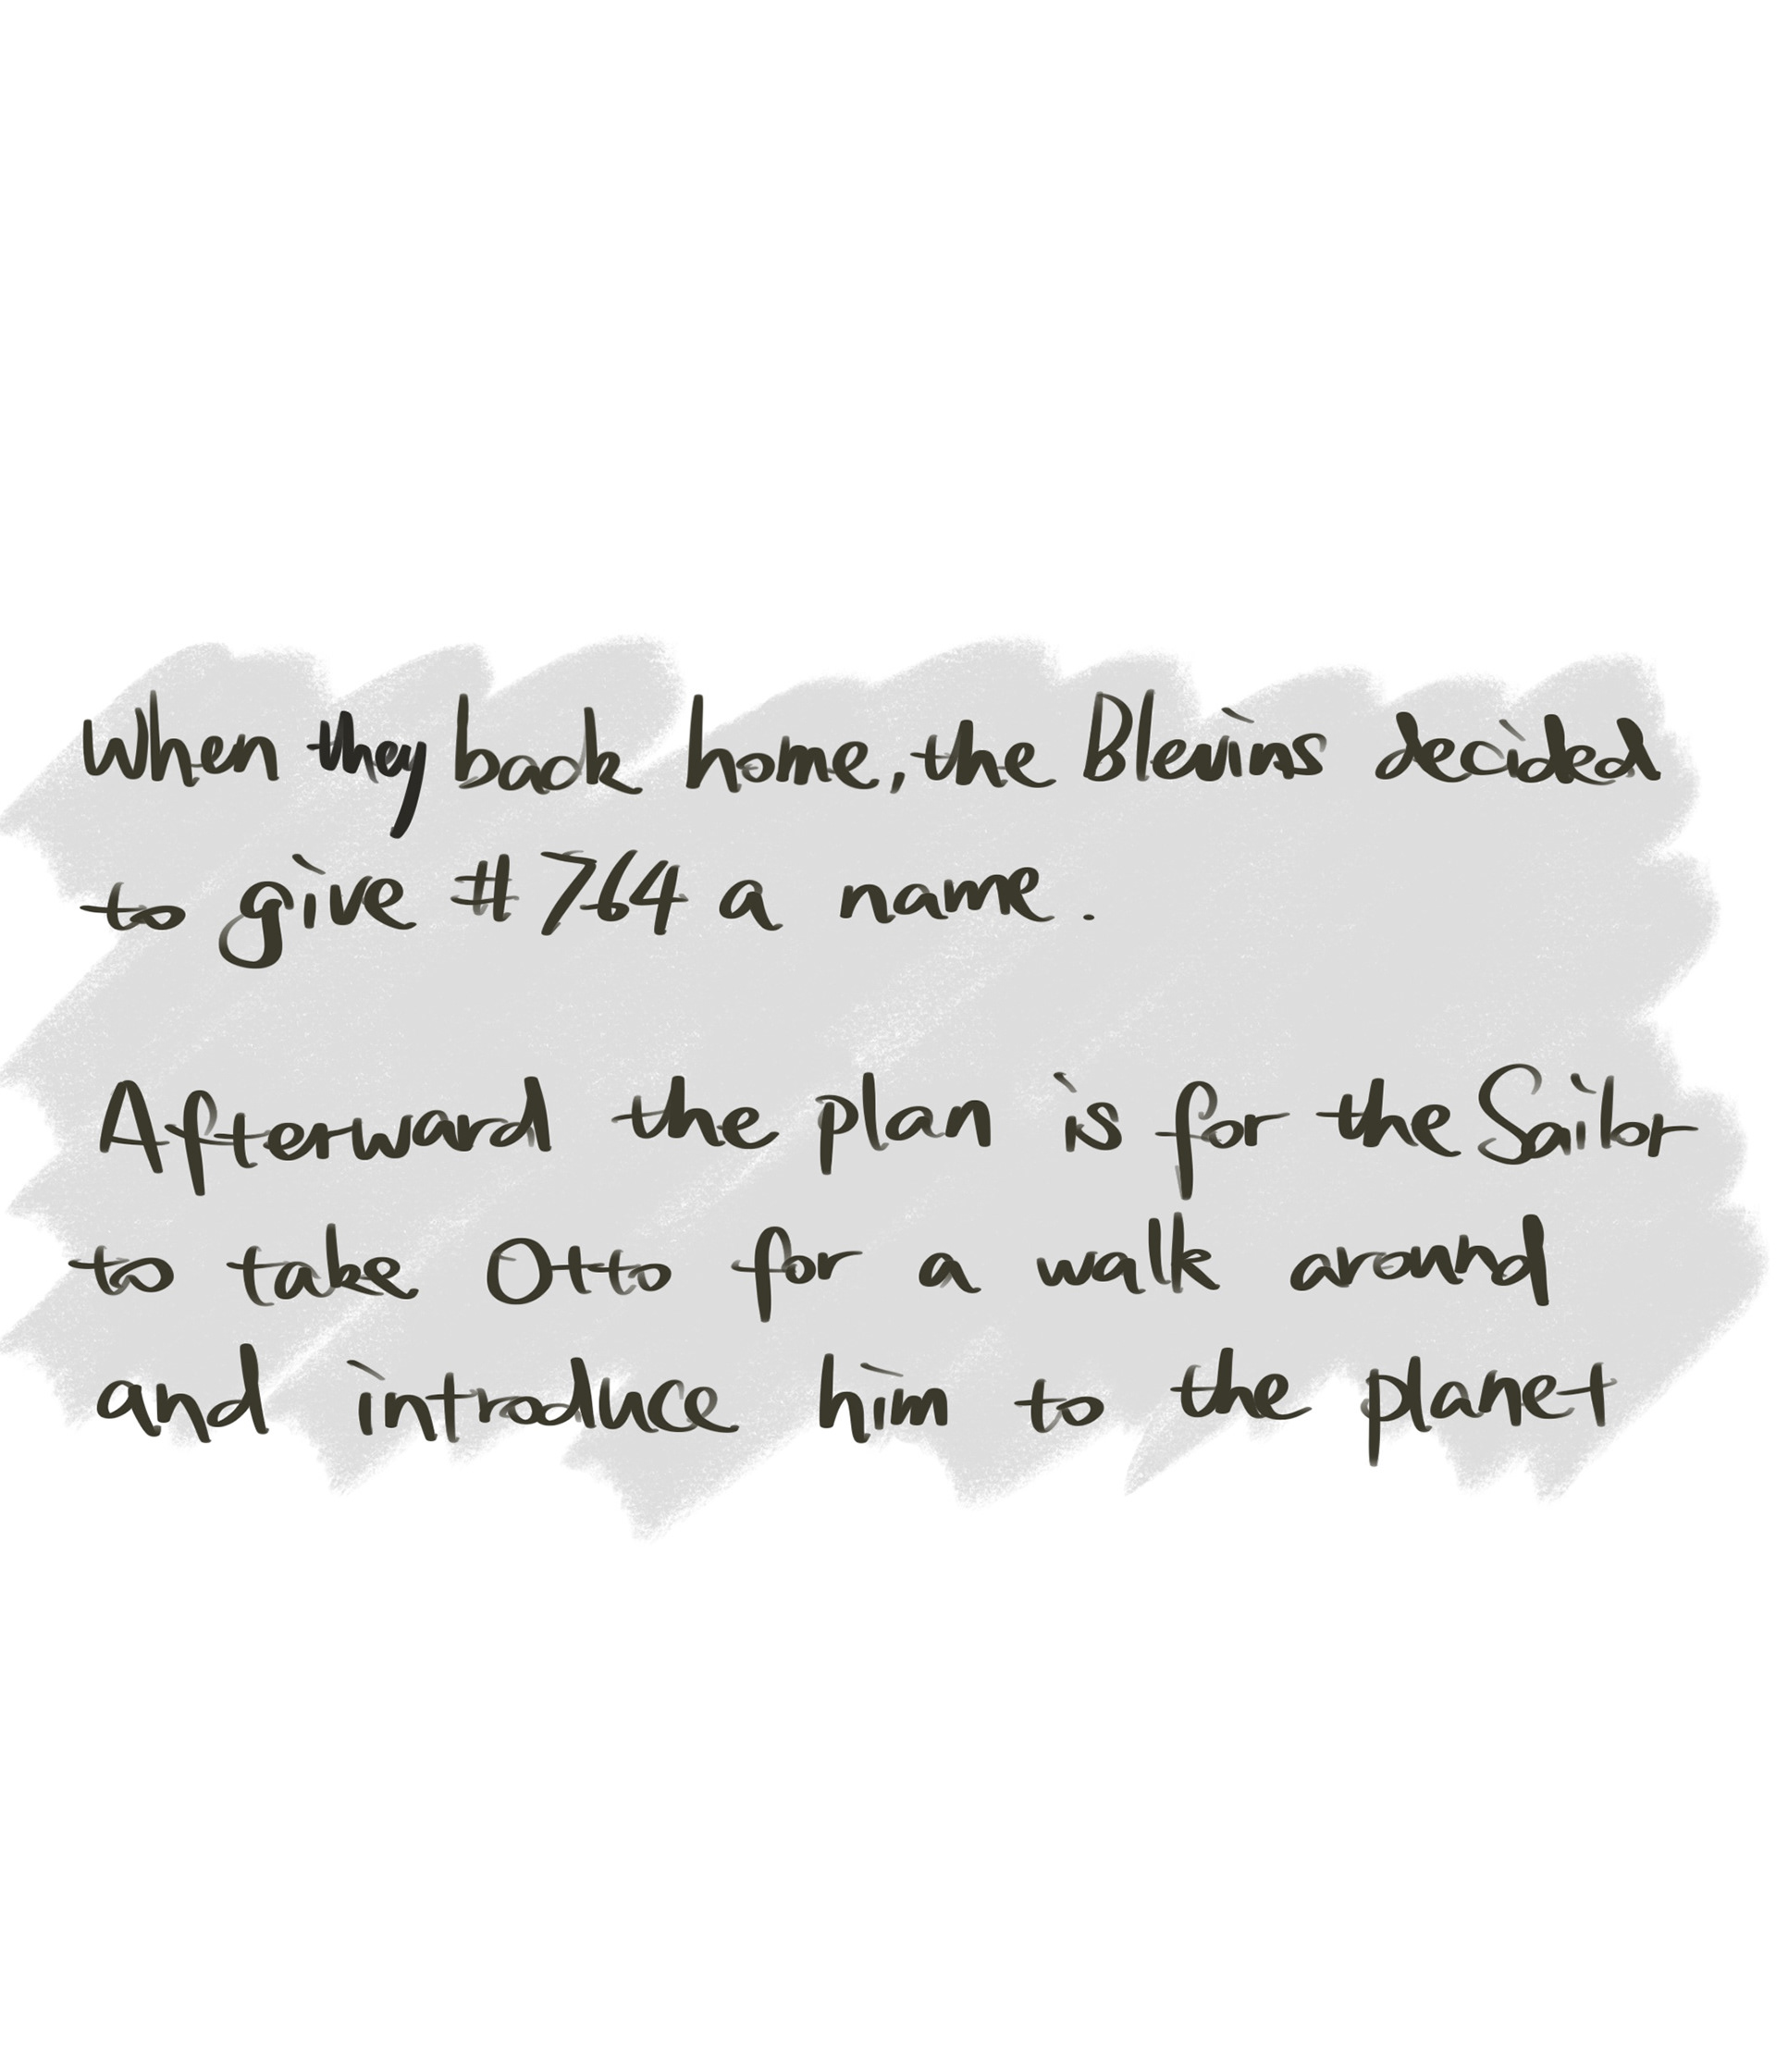 When they back home, the Blevins decided
to give #764 a name.
Afterward the plan is for the Sailor
to take Otto for a walk around
and introduce him to the planet